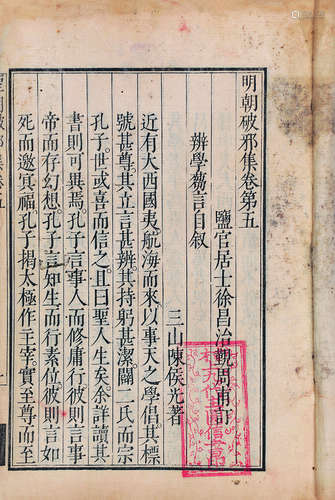 明朝破邪集卷第五
鹽官居士徐昌治覲周甫訂
辨學蒭言自敘
三山陳侯光著
近有大西國夷航海而來以事天之學倡其標
號甚尊其立言甚辨其持躬甚潔闢二氏而宗
孔子世或喜而信之且曰聖人生矣余詳讀其
書則可異焉孔子言事人而修庸行彼則言事
帝而存幻想孔子言知生而行素位彼則言如
死而邀冥福孔子揭太極作主宰實至尊而至